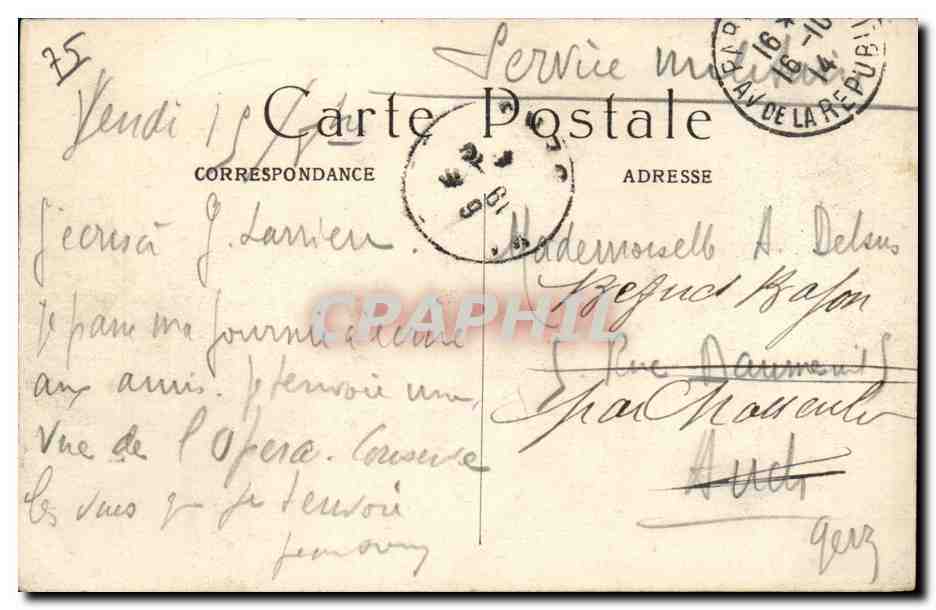 75
Service
PAR
16 * 16-10 14
AV. DE LA REPUBLI
Vendi 15
Carte Postale
CORRESPONDANCE
ADRESSE
J'écris à G. Larrieu.
Mademoiselle A. Delsus
Bezues Bajon
Je passe ma journée à écrire
5 Rue
aux amis. Je t'envoie une
par Masseube
vue de l'Opéra. Conserve
Auch
les vues que je t'envoie
Gers
CPAPHIL